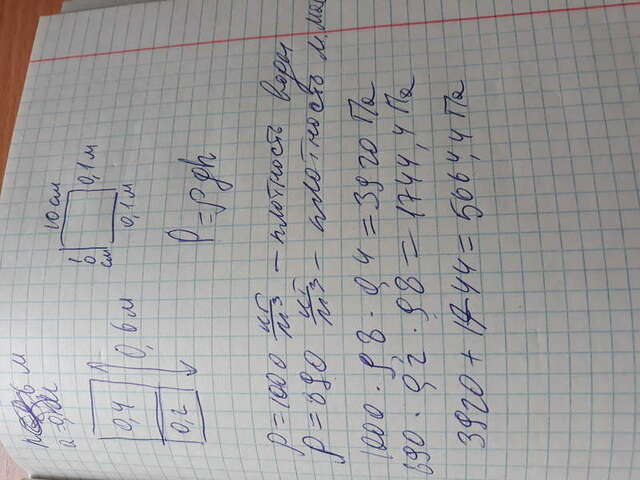 6 м
a = 0,1м
10 см
10 см
0,1 м
0,1 м
0,4
0,6 м
0,2
P = ρgh
ρ = 1000 кг/м³ – плотность воды
ρ = 890 кг/м³ – плотность м. мас
1000 · 9,8 · 0,4 = 3920 Па
890 · 0,2 · 9,8 = 1744,4 Па
3920 + 1744 = 5664,4 Па